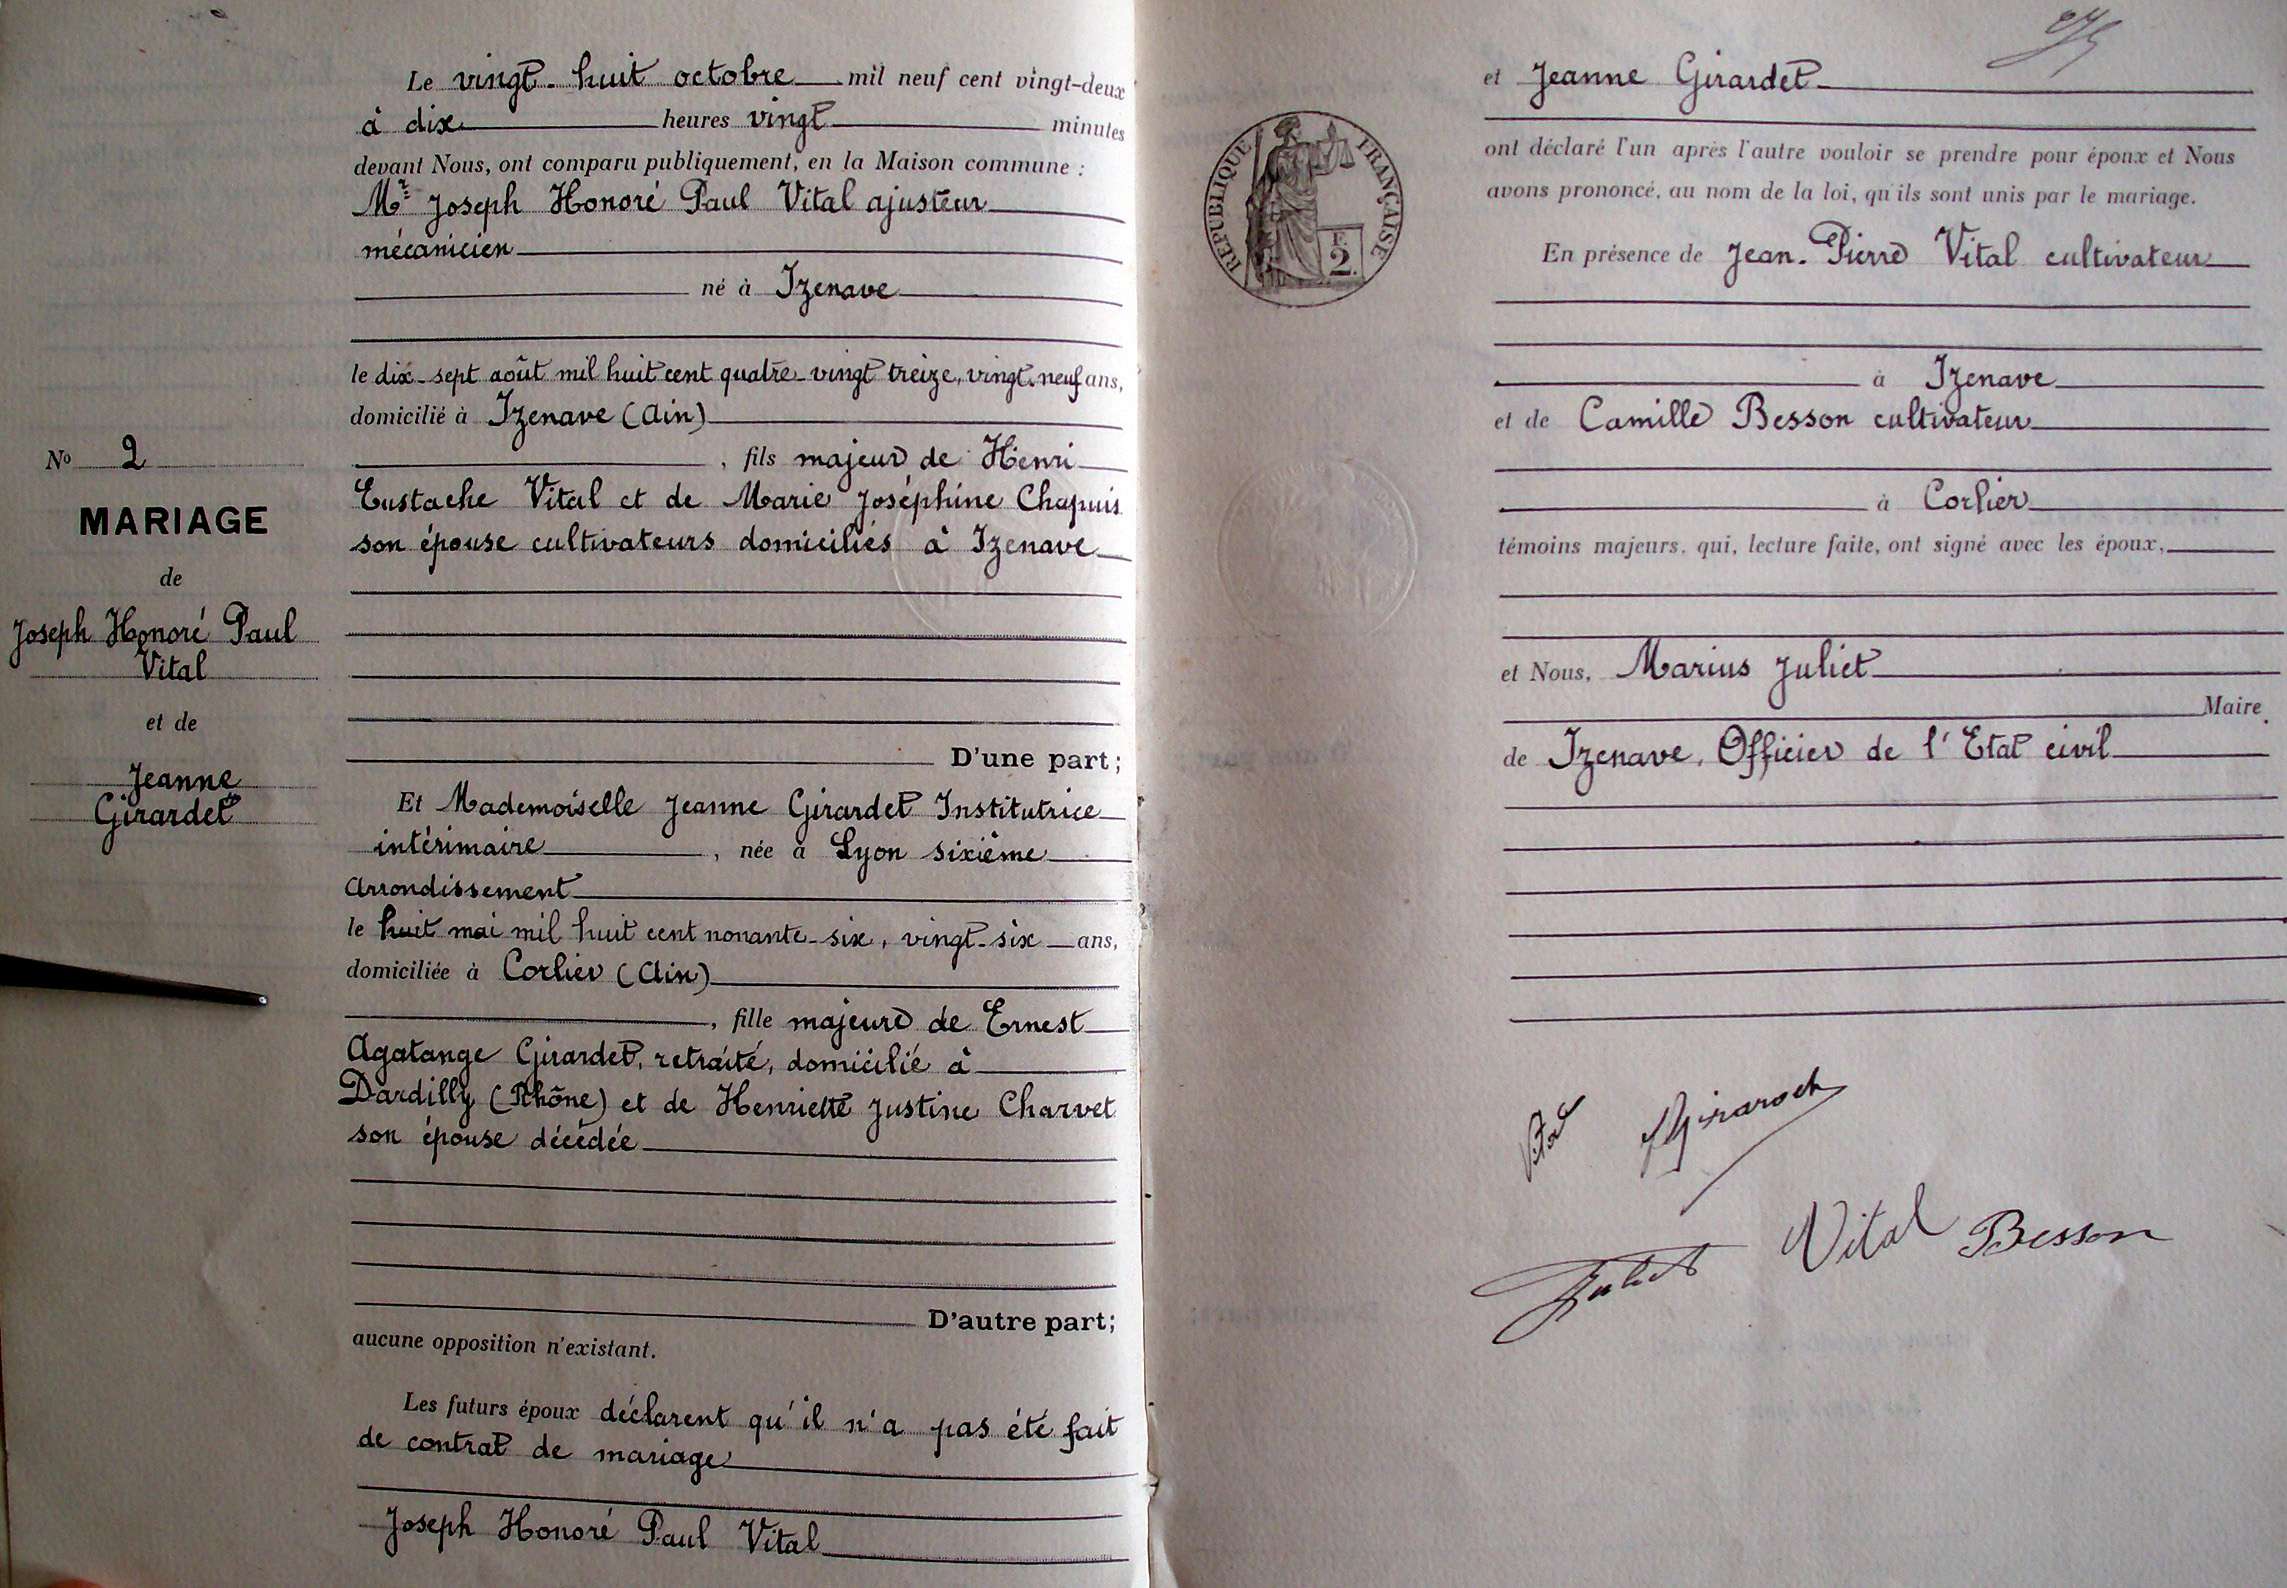 N° 2
MARIAGE
de
Joseph Honoré Paul
Vital
et de
Jeanne
Girardet
Le vingt-huit octobre mil neuf cent vingt-deux
à dix heures vingt minutes
devant Nous, ont comparu publiquement, en la Maison commune :
Mr Joseph Honoré Paul Vital ajusteur
mécanicien
né à Izenave
le dix-sept août mil huit cent quatre-vingt treize, vingt-neuf ans,
domicilié à Izenave (Ain)
, fils majeur de Henri
Eustache Vital et de Marie Joséphine Chapuis
son épouse cultivateurs domiciliés à Izenave
D'une part ;
Et Mademoiselle Jeanne Girardet Institutrice
intérimaire, née à Lyon sixième
arrondissement
le huit mai mil huit cent nonante-six, vingt-six ans,
domiciliée à Corlier (Ain)
, fille majeure de Ernest
Agatange Girardet, retraité, domicilié à
Dardilly (Rhône) et de Henriette Justine Charvet
son épouse décédée
D'autre part ;
aucune opposition n'existant.
Les futurs époux déclarent qu'il n'a pas été fait
de contrat de mariage
Joseph Honoré Paul Vital
et Jeanne Girardet
RÉPUBLIQUE FRANÇAISE
F.
2.
ont déclaré l'un après l'autre vouloir se prendre pour époux et Nous
avons prononcé, au nom de la loi, qu'ils sont unis par le mariage.
En présence de Jean-Pierre Vital cultivateur
à Izenave
et de Camille Besson cultivateur
à Corlier
témoins majeurs, qui, lecture faite, ont signé avec les époux,
et Nous, Marius Juliet
Maire
de Izenave, Officier de l'Etat civil
Vital JGirardet
Juliet Vital Besson